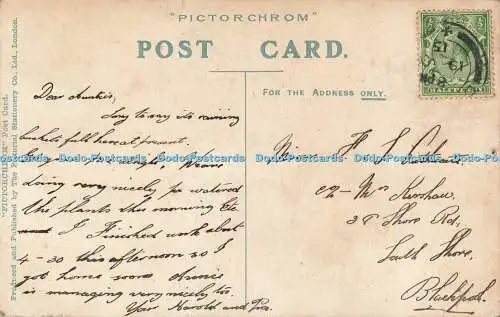 "PICTORCHROM"
POST CARD.
"PICTORCHROM" Post Card.
Produced and Published by The Pictorial Stationery Co., Ltd., London.
HALFPENNY
FOR THE ADDRESS ONLY.
Dear Auntie,
Sorry to say its raining
buckets full here at present.
doing very nicely
the plants this morning Etc
I Finished work about
4-30 this afternoon so I
got home soon Annie
is managing very nicely too.
Your Harold and
Miss H S
c/o Mrs Kershaw
38 Shore Rd,
South Shore,
Blackpool.
Dodo-Postcards Dodo-Postcards Dodo-Postcards Dodo-Postcards Dodo-Postcards Dodo-Postcards